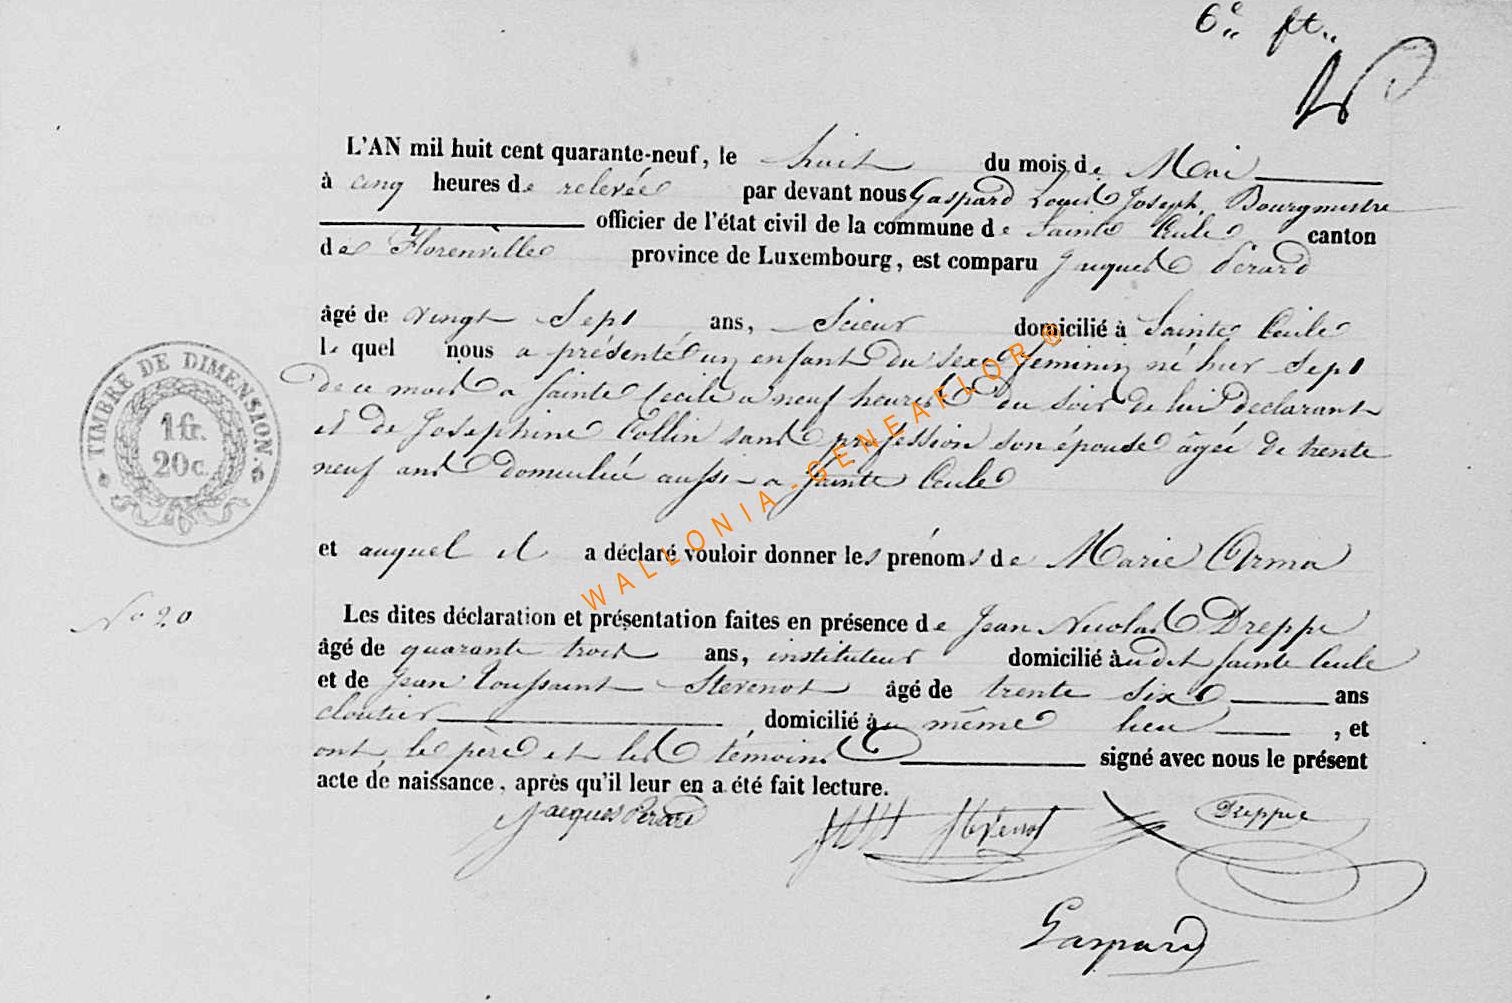 6e ft.
L'AN mil huit cent quarante-neuf, le huit du mois de Mai
à cinq heures de relevée par devant nous Gaspard Louis Joseph, Bourgmestre
officier de l'état civil de la commune de Sainte Cecile canton
de Florenville province de Luxembourg, est comparu Jacques Pérard
âgé de vingt Sept ans, Scieur domicilié à Sainte Cecile
le quel nous a présenté un enfant du sexe feminin né hier Sept
de ce mois a Sainte Cecile a neuf heures du Soir de lui declarant
et de Josephine Collin sans profession son épouse âgée de trente
neuf ans domiciliée aussi a Sainte Cecile
et auquel il a déclaré vouloir donner les prénoms de Marie Orma
TIMBRE DE DIMENSION.
1 fr.
20 c.
No 20
Les dites déclaration et présentation faites en présence de Jean Nicolas Dreppe
âgé de quarante trois ans, instituteur domicilié audit Sainte Cecile
et de Jean Toussaint Stevenot âgé de trente six ans
cloutier domicilié au même lieu , et
ont le père et les témoins signé avec nous le présent
acte de naissance, après qu'il leur en a été fait lecture.
Jacques Perard Stevenot Dreppe
Gaspard
WALLONIA-GENEAFLOR®